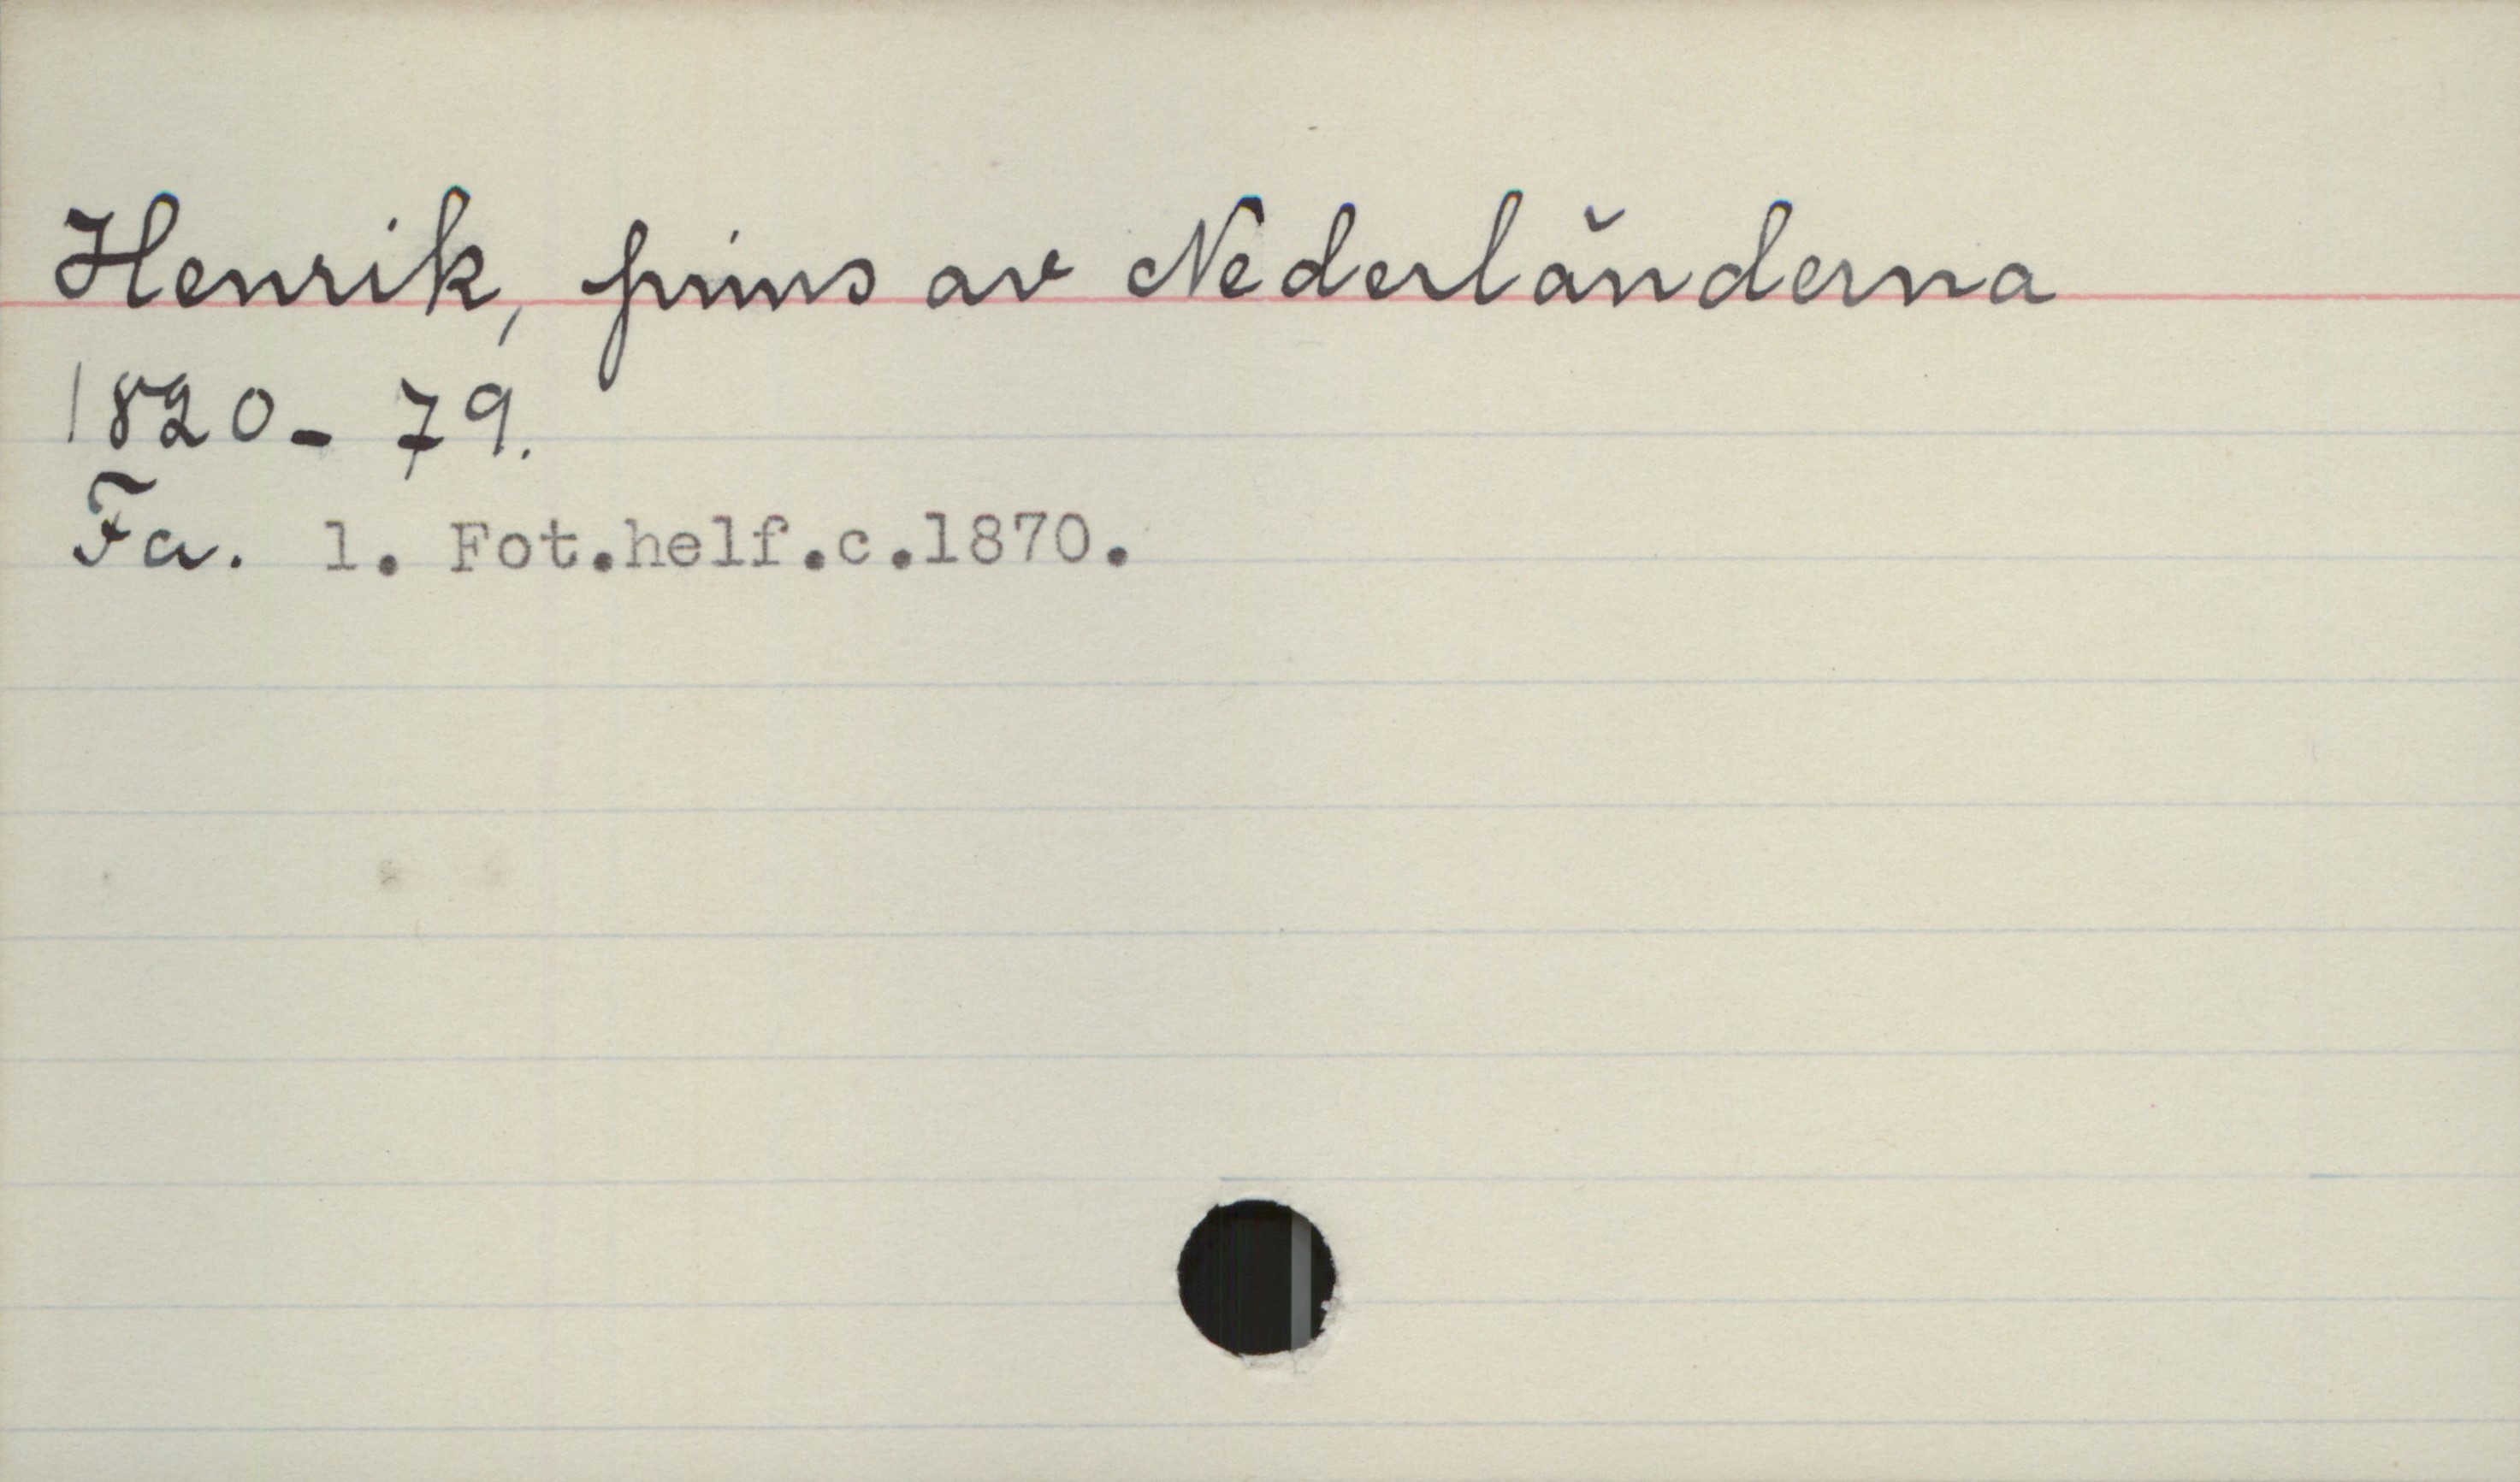 Henrik, prins av Nederländerna
1820-79.
Fa. 1. Fot.helf.c.1870.